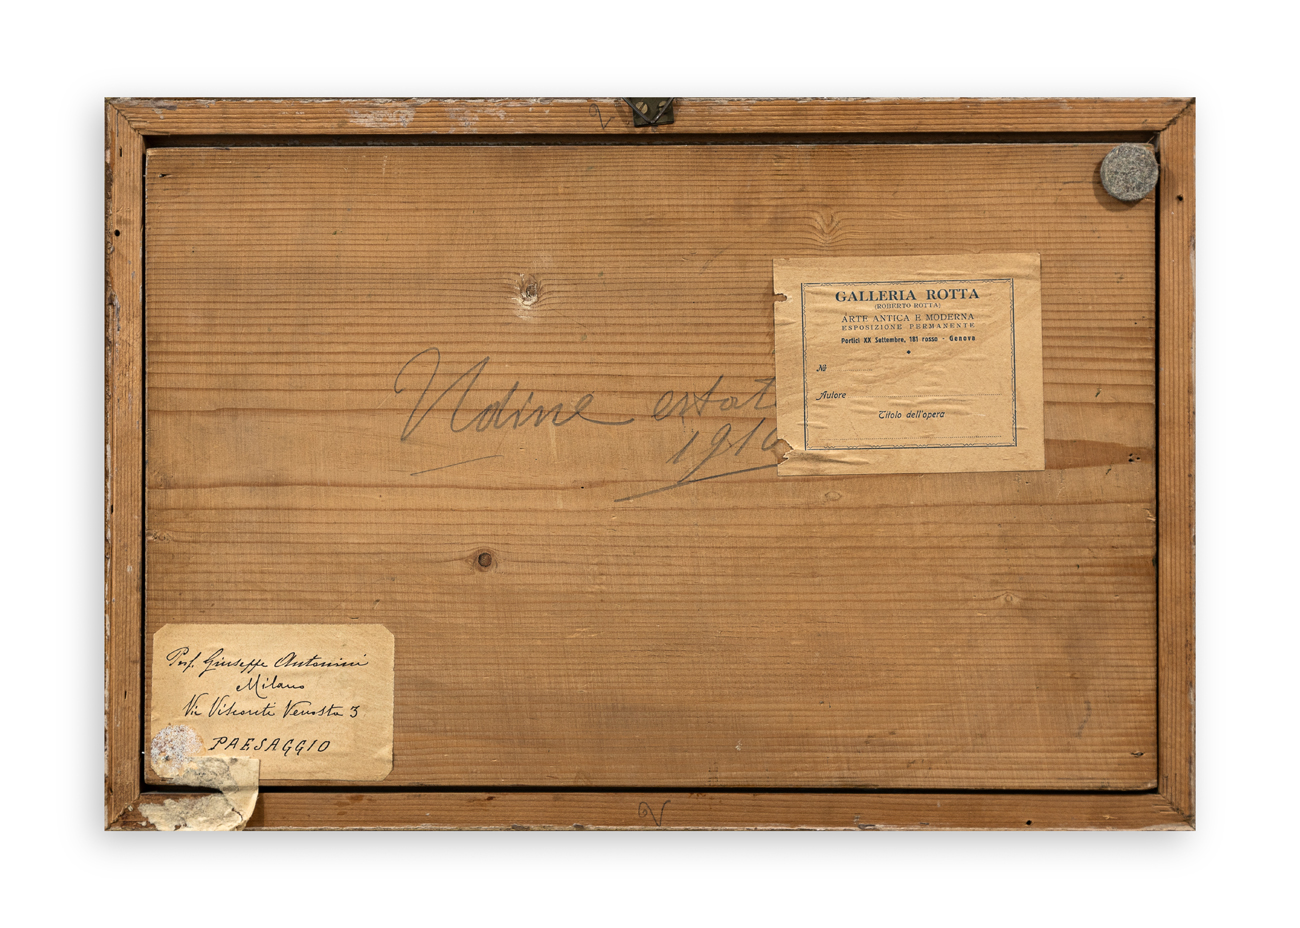 GALLERIA ROTTA
(ROBERTO ROTTA)
ARTE ANTICA E MODERNA
ESPOSIZIONE PERMANENTE
Portici XX Settembre, 181 rosso - Genova
No
Autore
Titolo dell'opera
Udine estat
191
Prof. Giuseppe Antonini
Milano
Via Visconti Venosta 3
PAESAGGIO